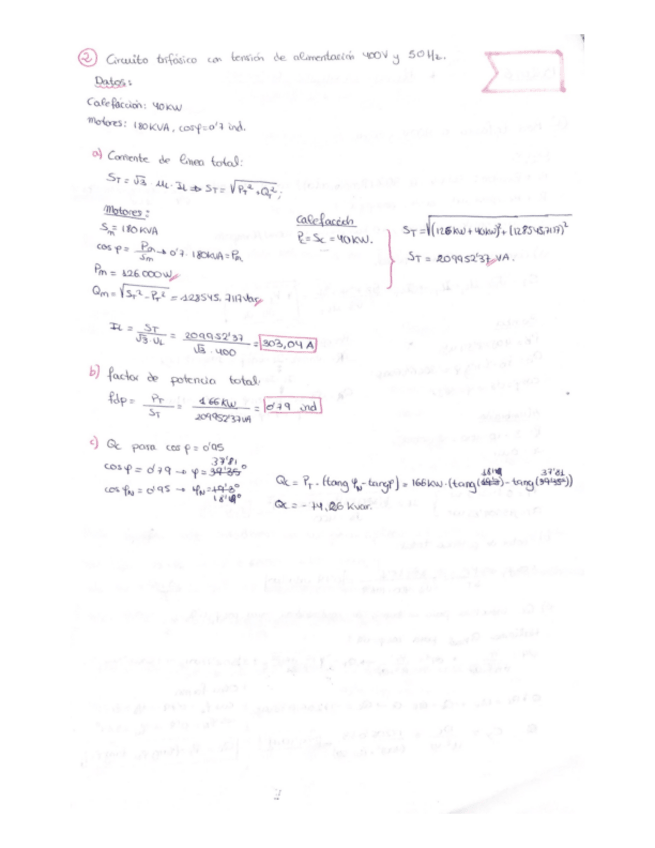 ② Circuito trifásico con tensión de alimentación 400V y 50Hz.
Datos:
Calefacción: 40KW
Motores: 180KVA, cosφ=0'7 ind.
a) Corriente de línea total:
S_T = √3 · U_L · I_L ⇒ S_T = √(P_T² + Q_T²);
Motores:
S_m = 180KVA
cos φ = P_m/S_m → 0'7 · 180KVA = P_m
P_m = 126.000W
Q_m = √(S_T² - P_T²) = 128545,7117 Var
Calefacción
P_c = S_c = 40KW.
S_T = √((126KW + 40KW)² + (128545,7117)²
S_T = 209952'37 VA.
I_L = S_T/(√3 · U_L) = 209952'37/(√3 · 400) = 303,04 A
b) factor de potencia total:
fdp = P_T/S_T = 166KW/209952'37VA = 0'79 ind
c) Qc para cos φ = 0'95
37'81
cos φ = 0'79 → φ = 39'35°
cos φ_N = 0'95 → φ_N =
18'19°
18'19 37'81
Qc = P_T · (tang φ_N - tang φ) = 166KW · (tang ( ) - tang ( ))
Qc = - 74,26 Kvar.